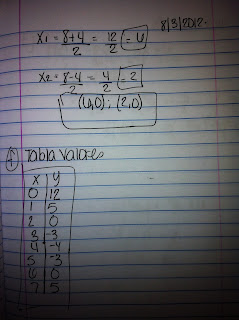 8/3/2012.
X₁ = 8+4/2 = 12/2 = 6
X₂ = 8-4/2 = 4/2 = 2
(6,0) ; (2,0)
Tabla Valores
X Y
0 12
1 5
2 0
3 -3
4 -4
5 -3
6 0
7 5